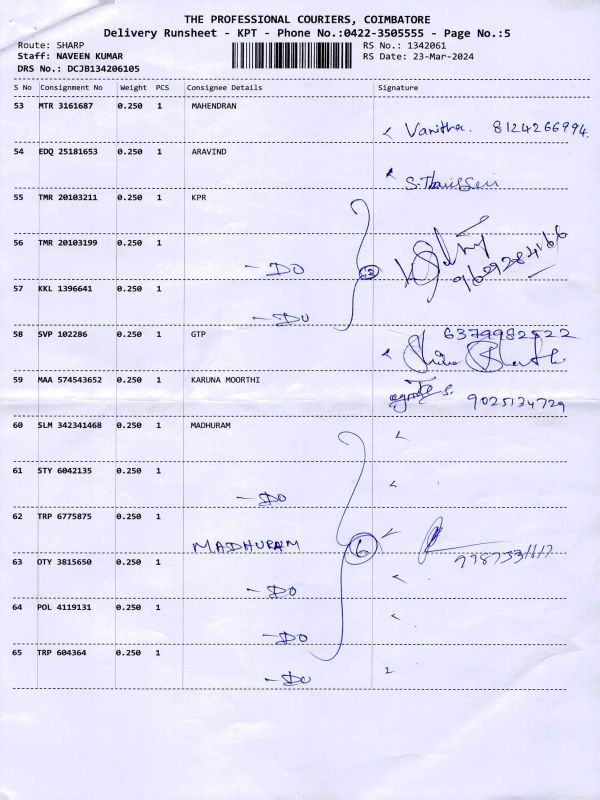 THE PROFESSIONAL COURIERS, COIMBATORE
Delivery Runsheet - KPT - Phone No.:0422-3505555 - Page No.:5
Route: SHARP RS No.: 1342061
Staff: NAVEEN KUMAR RS Date: 23-Mar-2024
DRS No.: DCJB134206105
S No Consignment No Weight PCS Consignee Details Signature
53 MTR 3161687 0.250 1 MAHENDRAN
Vanitha. 8124266994.
54 EDQ 25181653 0.250 1 ARAVIND
55 TMR 20103211 0.250 1 KPR
56 TMR 20103199 0.250 1
- DO 9689284166
57 KKL 1396641 0.250 1
- DO
58 SVP 102286 0.250 1 GTP 6379982522
59 MAA 574543652 0.250 1 KARUNA MOORTHI
9025134729
60 SLM 342341468 0.250 1 MADHURAM
61 STY 6042135 0.250 1
- DO
62 TRP 6775875 0.250 1
MADHURAM 6
63 OTY 3815650 0.250 1
- DO
64 POL 4119131 0.250 1
- DO
65 TRP 604364 0.250 1
- DO